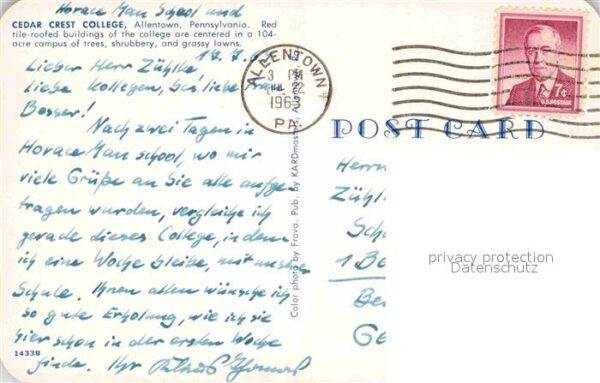 Horace Man School und
CEDAR CREST COLLEGE, Allentown, Pennsylvania. Red
tile-roofed buildings of the college are centered in a 104-
acre campus of trees, shrubbery, and grassy lawns.
Lieber Herr Zühlke!
liebe Kollegen, liebe Frau
Besser!
Nach zwei Tagen in
Horace Man school, wo mir
viele Grüße an Sie alle aufge-
tragen wurden, vergleiche ich
gerade dieses College, in dem
ich eine Woche bleibe, mit unserer
Schule. Ihnen allen wünsche ich
so gute Erholung, wie ich sie
hier schon in der ersten Woche
finde. Ihr
14338
Color photo by Frova. Pub. by KARDmasters, Allentown, Pa.
ALLENTOWN
3 PM
22
1963
PA.
7¢
U.S. POSTAGE
POST CARD
Herrn
Zühl
Sch
1 Be
Be
Ge
privacy protection
Datenschutz